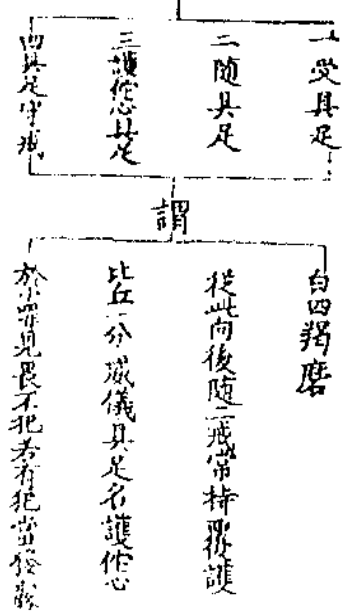 一受具足
二隨具足
三護佗心具足
四具足守戒
謂
白四羯磨
從此向後隨一一戒常持覆護
比丘一分威儀具足名護佗心
於小罪見畏不犯若有犯當發露